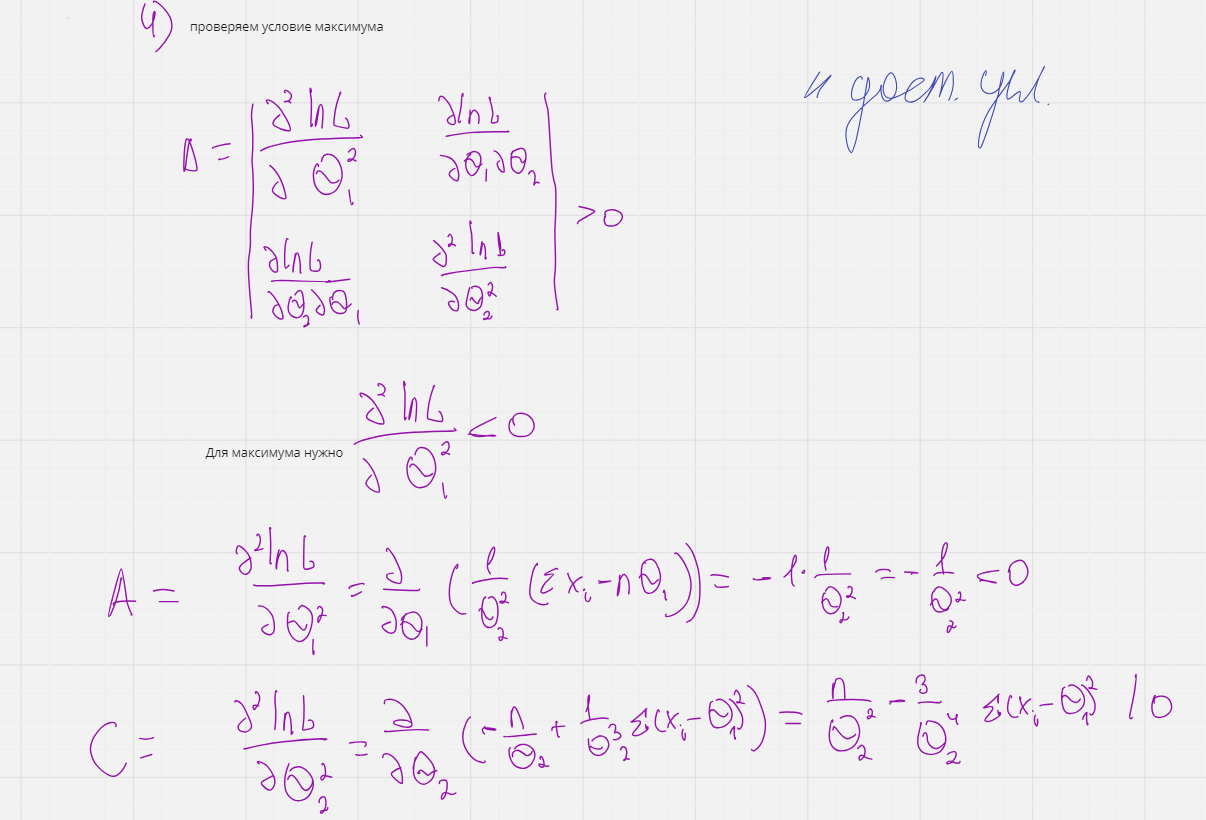 4) проверяем условие максимума
и дост. усл.
Δ = | ∂² ln L / ∂ Θ₁² ∂ ln L / ∂Θ₁∂Θ₂ |
| ∂ ln L / ∂Θ₂∂Θ₁ ∂² ln L / ∂Θ₂² | > 0
Для максимума нужно ∂² ln L / ∂ Θ₁² < 0
A = ∂² ln L / ∂Θ₁² = ∂ / ∂Θ₁ (1/Θ₂² (Σ xᵢ - nΘ₁)) = - 1 · 1/Θ₂² = - 1/Θ₂² < 0
C = ∂² ln L / ∂Θ₂² = ∂ / ∂Θ₂ (- n/Θ₂ + 1/Θ₂³ Σ(xᵢ - Θ₁)²) = n/Θ₂² - 3/Θ₂⁴ Σ(xᵢ - Θ₁)² | 0